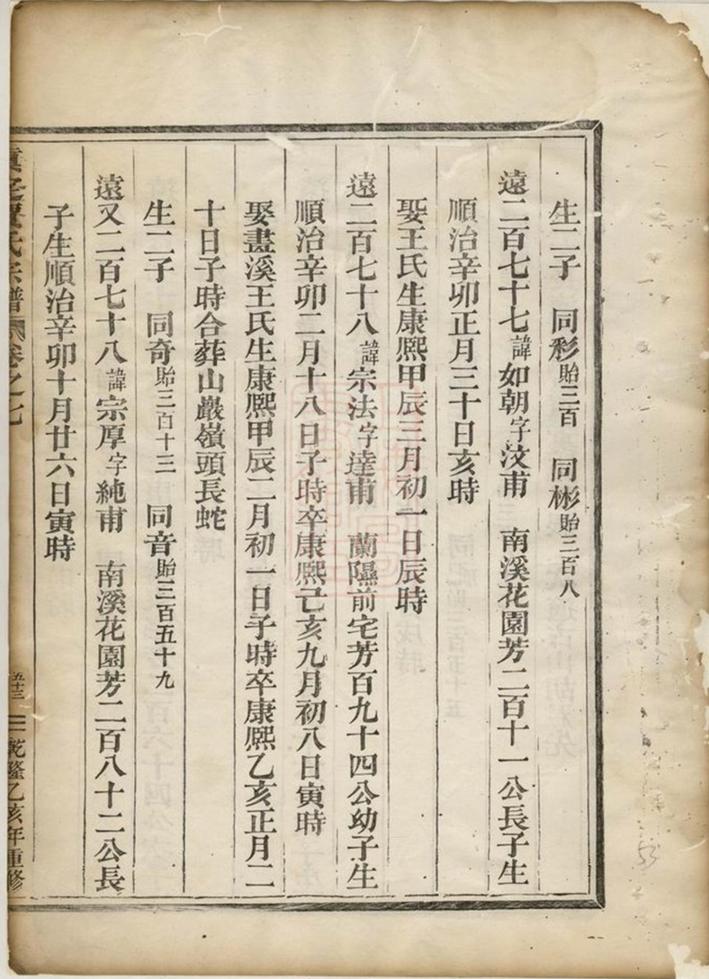 生二子 同彩貽三百 同彬貽三百八
遠二百七十七諱如朝字汶甫 南溪花園芳二百十一公長子生
順治辛卯正月三十日亥時
娶王氏生康熙甲辰三月初一日辰時
遠二百七十八諱宗法字達甫 蘭隰前宅芳百九十四公幼子生
順治辛卯二月十八日子時卒康熙己亥九月初八日寅時
娶盡溪王氏生康熙甲辰二月初一日子時卒康熙乙亥正月二
十日子時合葬山巖嶺頭長蛇
生二子 同奇貽三百十三 同音貽三百五十九
遠又二百七十八諱宗厚字純甫 南溪花園芳二百八十二公長
子生順治辛卯十月廿六日寅時
氏宗譜 卷之七 五十三 乾隆乙亥年重修
53